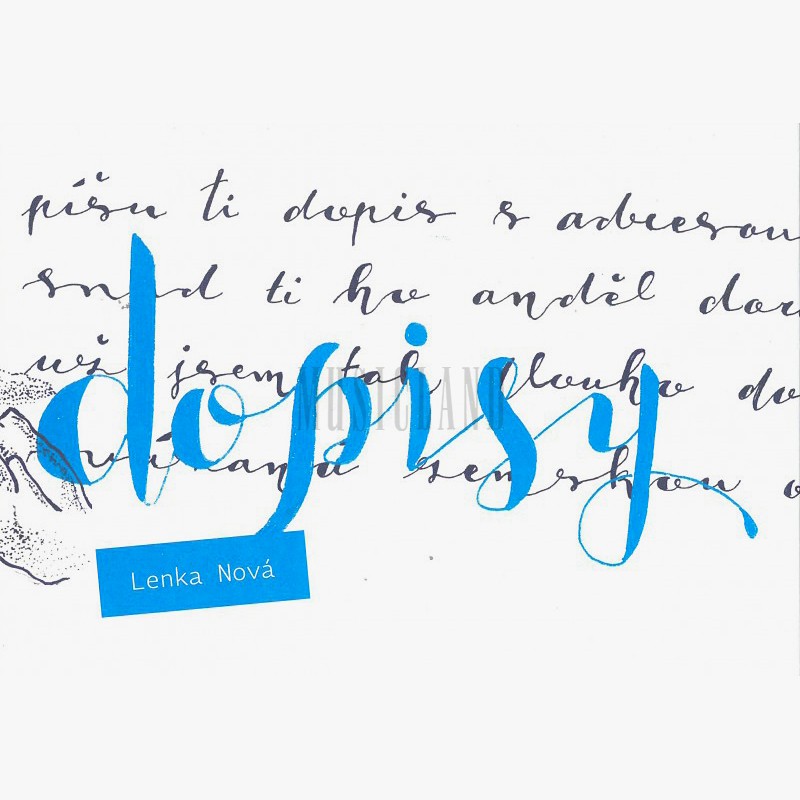 píšu ti dopis s adresou
snad ti ho anděl
už jsem tak dlouho
zemskou
dopisy
MUSICLAND
Lenka Nová